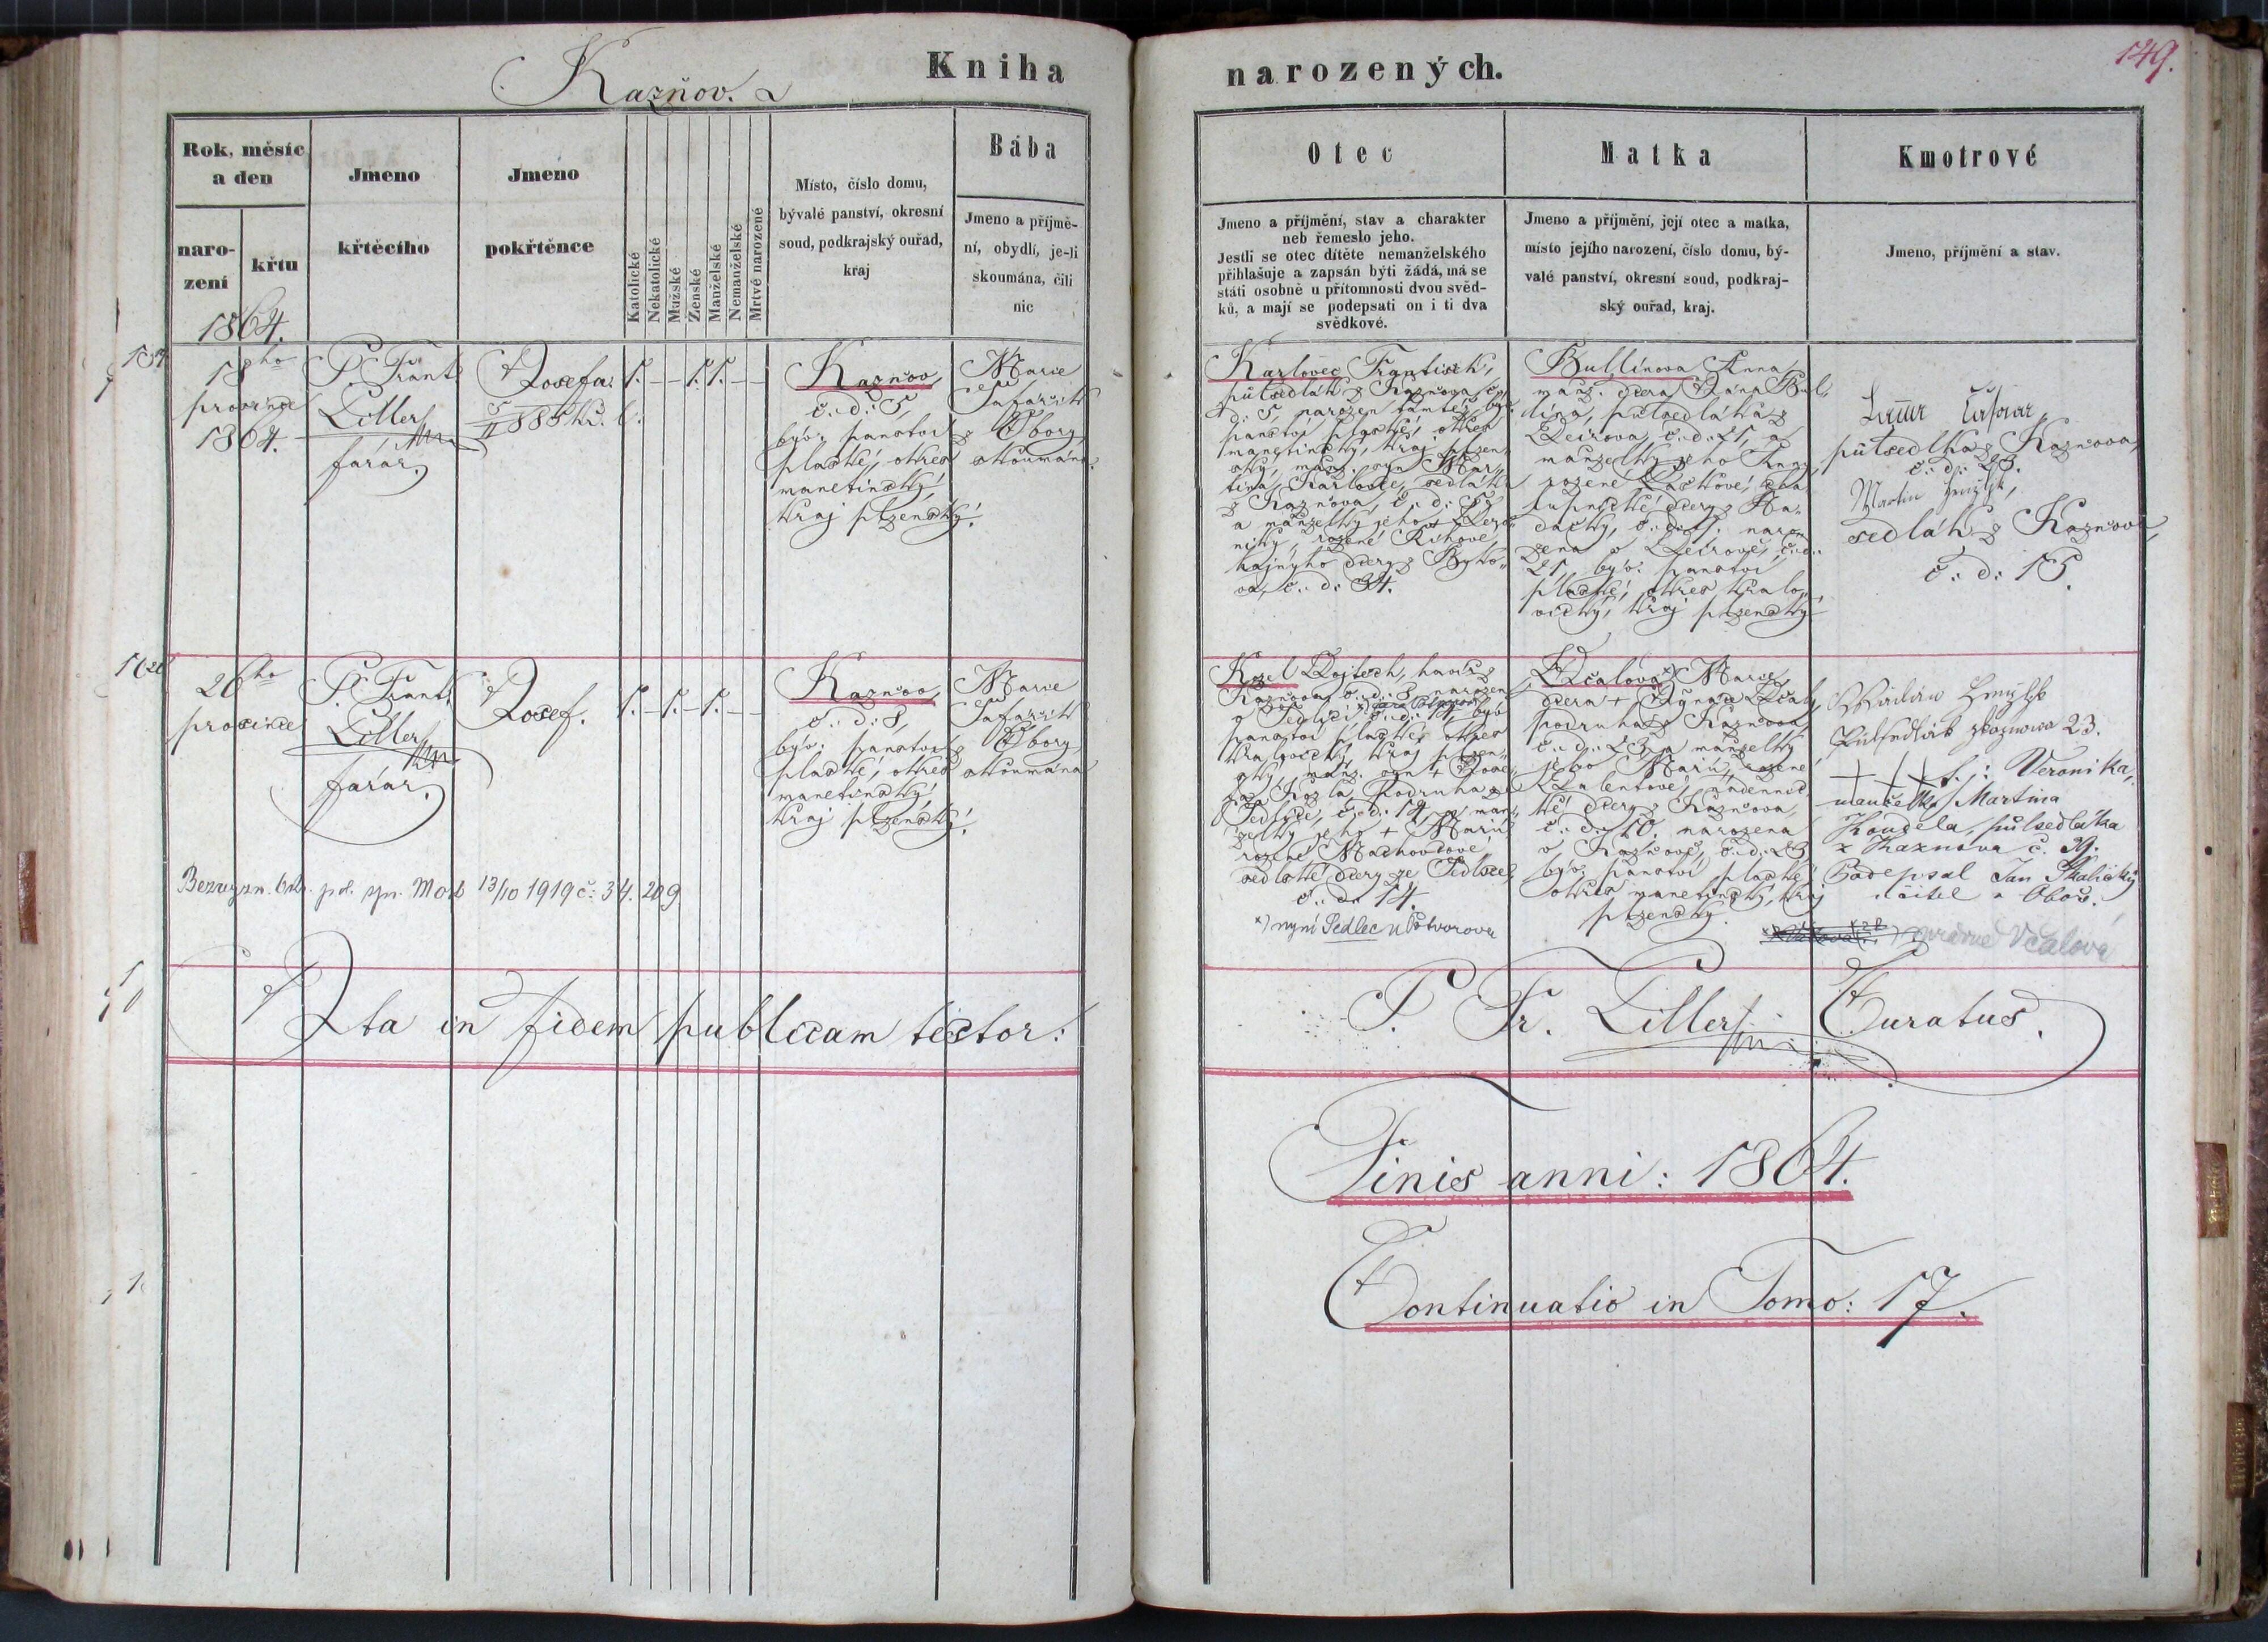 Kazňov.
Kniha
narozených.
149.
Rok, měsíc
a den
naro-
zení
křtu
Jmeno
křtěcího
Jmeno
pokřtěnce
Katolické
Nekatolické
Mužské
Ženské
Manželské
Nemanželské
Mrtvě narozené
Místo, číslo domu,
bývalé panství, okresní
soud, podkrajský ouřad,
kraj
Bába
Jmeno a příjmě-
ní, obydlí, je-li
skoumána, čili
nic
Otec
Jmeno a příjmění, stav a charakter
neb řemeslo jeho.
Jestli se otec dítěte nemanželského
přihlašuje a zapsán býti žádá, má se
státi osobně u přítomnosti dvou svěd-
ků, a mají se podepsati on i ti dva
svědkové.
Matka
Jmeno a příjmění, její otec a matka,
místo jejího narození, číslo domu, bý-
valé panství, okresní soud, podkraj-
ský ouřad, kraj.
Kmotrové
Jmeno, příjmění a stav.
1864.
18ho
prosince
1864.
P. Frant.
Liller
farář.
Josefa.
1. – – 1. 1. – –
Kaznov,
č. d. 5,
býv. panství
plaské, okres
manetinský,
kraj plzenský.
Marie
Šafařík
z Obory,
skoumána.
Karlovec František,
půlsedlák z Kaznova, č.
d. 5, narozen tamtéž, býv.
panství plaské, okres
manetinský, kraj plzen-
ský, manž. syn Mar-
tina Karlovce, sedláka
z Kaznova, č. d. 5,
a manželky jeho Vero-
niky, rozené Říhové,
hajného dcery z Byko-
va, č. d. 34.
Bullínova Anna,
manž. dcera Jána Bul-
lína, půlsedláka z
č. d. 21, a
manželky jeho Anny,
rozené
dcery z
č. d. naro-
zena v č. d.
21, býv. panství
plaské, okres kralo-
vický, kraj plzenský.
půlsedlka z Kaznova,
č. d. 23.
Martin
sedlák z Kaznova,
č. d. 15.
26ho
prosince
P. Frant.
Liller
farář.
Josef.
1. – 1. – 1. – –
Kaznov,
č. d. 8,
býv. panství
plaské, okres
manetinský,
kraj plzenský.
Marie
Šafařík
z Obory,
skoumána
Kozel Vojtěch, havíř z
Kaznova, č. d. 8, narozen
v Sedlci, č. d. 14, býv.
panství plaské, okres
kralovický, kraj plzen-
ský, manž. syn + Jose-
fa Kozla, podruha ze
Sedlce, č. d. 14, a man-
želky jeho + Marie
rozené Machovcové,
sedlské dcery ze Sedlce,
č. d. 14.
x) nyní Sedlec u Potvorova
Včalová Marie,
dcera + Ignáce Včaly,
podruha z Kaznova,
č. d. 23, a manželky
jeho Marie, rozené
Valentové,
dcery z Kaznova,
č. d. 10. narozena
v Kaznově, č. d. 23
býv. panství plaské,
okres manetinský, kraj
plzenský.
správně Včalová
23.
+ + + t. j.: Veronika,
manželka Martina
Koudela, půlsedláka
z Kaznova č. 39.
Podepsal Jan Skalický
učitel v Oboře.
Bezvyzn. pol. spr. Most 13/10 1919 č: 34.209
Ita in fidem publicam testor:
P. Fr. Liller
Curatus.
Finis anni: 1864.
Continuatio in Tomo: 17.